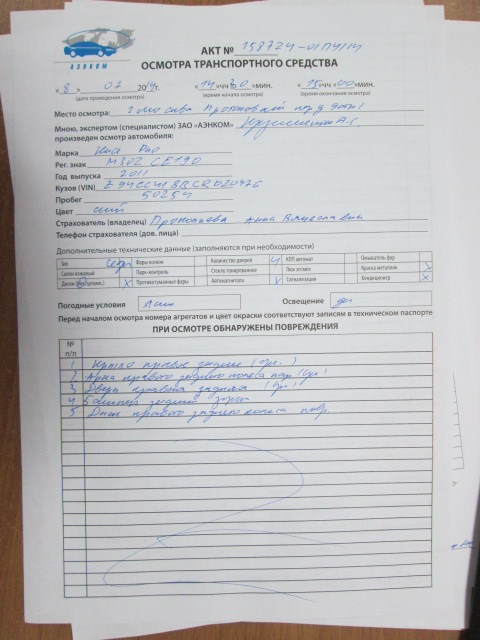 АЭНКОМ
АКТ № 158724-01ПУ/14
ОСМОТРА ТРАНСПОРТНОГО СРЕДСТВА
« 8 » 07 2014г. « 14 »час 30 «мин. « 15 »час 00 «мин.
(дата проведения осмотра) (время начала осмотра) (время окончания осмотра)
Место осмотра: г Москва
Мною, экспертом (специалистом) ЗАО «АЭНКОМ»
произведен осмотр автомобиля:
Марка Киа Рио
Рег. знак М302СЕ190
Год выпуска 2011
Кузов (VIN)
Пробег 50254
Цвет синий
Страхователь (владелец) Анна Вячеславовна
Телефон страхователя (дов. лица)
Дополнительные технические данные (заполняются при необходимости)
Тип Седан Фары ксенон Количество дверей 4 КПП автомат Омыватель фар
Салон кожаный Парк-контроль Стекло тонированное Люк эл/мех Краска металлик X
Диски (штамп.) X Противотуманные фары Автомагнитола V Сигнализация Кондиционер X
Погодные условия Ясно Освещение
Перед началом осмотра номера агрегатов и цвет окраски соответствуют записям в техническом паспорте
ПРИ ОСМОТРЕ ОБНАРУЖЕНЫ ПОВРЕЖДЕНИЯ
№ п/п
1 Крыло правое заднее
2 Арка правого заднего колеса
3 Дверь правая задняя
4 Бампер задний
5 Диск правого заднего колеса повр.